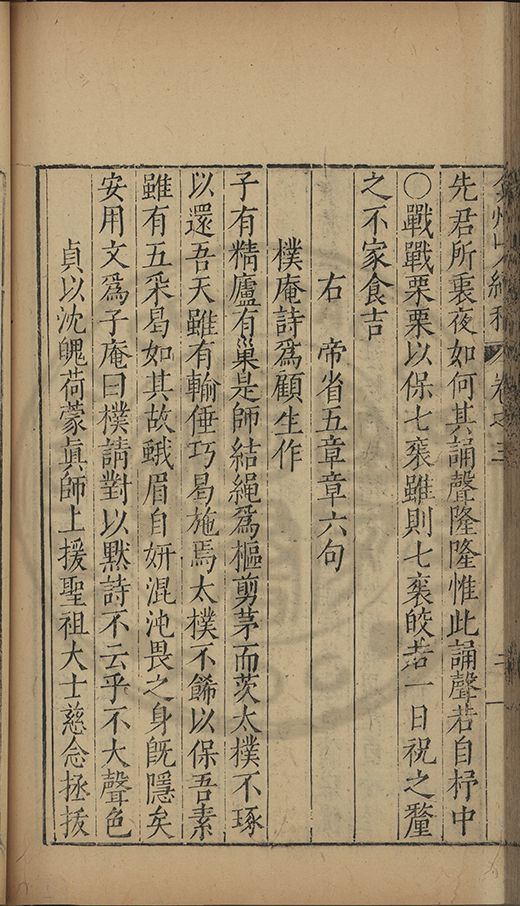 弇州山人續稿 卷之三
先君所裹夜如何其誦聲隆隆惟此誦聲若自杼中
○戰戰栗栗以保七袠雖則七袠皎若一日祝之釐
之不家食吉
右 帝省五章章六句
樸庵詩爲顧生作
子有精廬有巢是師結繩爲樞剪茅而茨太樸不琢
以還吾天雖有輸倕巧曷施焉太樸不餙以保吾素
雖有五采曷如其故蛾眉自妍混沌畏之身旣隱矣
安用文爲子庵曰樸請對以默詩不云乎不大聲色
貞以沈魄荷蒙眞師上援聖祖大士慈念拯拔